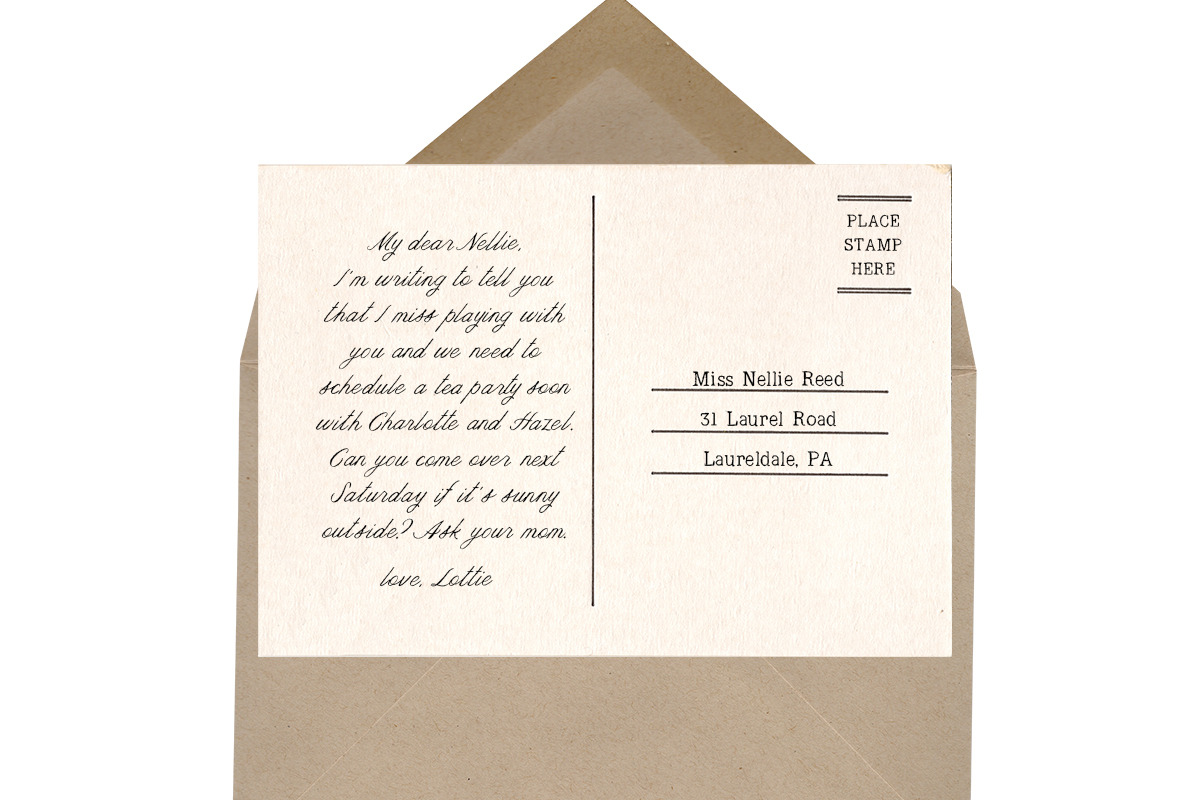 My dear Nellie,
I'm writing to tell you
that I miss playing with
you and we need to
schedule a tea party soon
with Charlotte and Hazel.
Can you come over next
Saturday if it's sunny
outside? Ask your mom.
love, Lottie
PLACE
STAMP
HERE
Miss Nellie Reed
31 Laurel Road
Laureldale, PA